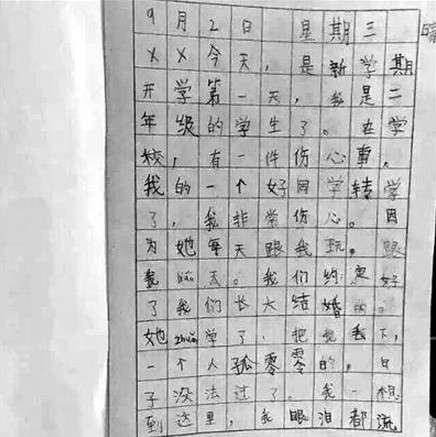 9月2日 星期三 晴
XX今天，是新学期
开学第一天，我是二
年级的学生了。在学
校，有一件伤心事。
我的一个好同学转学
了，我非常伤心。因
为她每天跟我玩，跟
我liáo天。我们约定好
了我们长大结婚的。
她zhuǎn学了，把我丢下，
一个人孤零零的，日
子没法过了。我一想
到这里，我眼泪都流